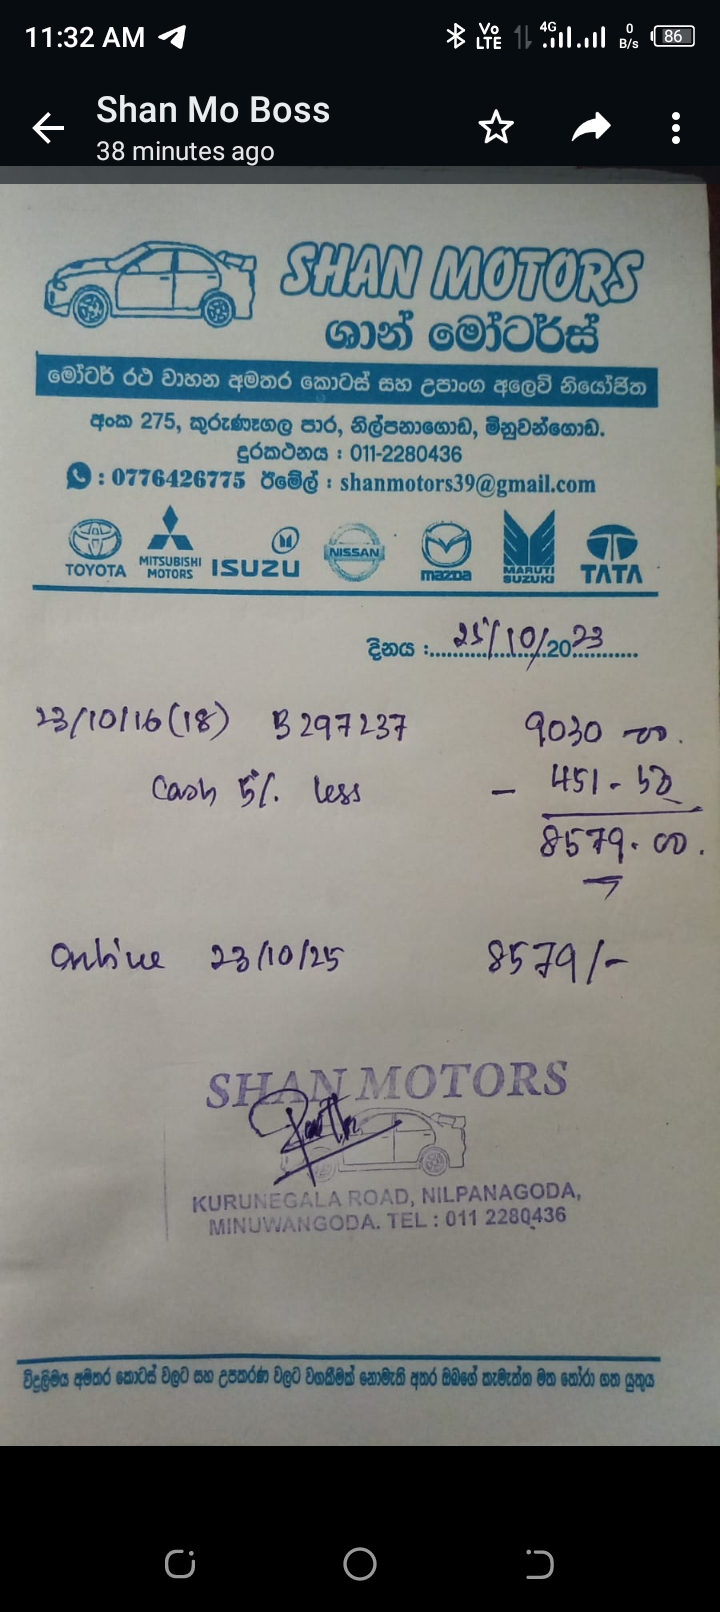 11:32 AM
Vo
LTE
4G
0
B/s
86
Shan Mo Boss
38 minutes ago
SHAN MOTORS
ශාන් මෝටර්ස්
මෝටර් රථ වාහන අමතර කොටස් සහ උපාංග අලෙවි නියෝජිත
අංක 275, කුරුණෑගල පාර, නිල්පනාගොඩ, මිනුවන්ගොඩ.
දුරකථනය : 011-2280436
: 0776426775 ඊමේල් : shanmotors39@gmail.com
TOYOTA MITSUBISHI MOTORS ISUZU NISSAN mazda MARUTI SUZUKI TATA
දිනය :..... 25/10/2023
23/10/16(18) B297237 9030 00.
Cash 5% less - 451.50
8579.00.
Online 23/10/25 8579/-
SHAN MOTORS
KURUNEGALA ROAD, NILPANAGODA,
MINUWANGODA. TEL : 011 2280436
විදුලිමය අමතර කොටස් වලට සහ උපකරණ වලට වගකීමක් නොමැති අතර ඔබගේ කැමැත්ත මත තෝරා ගත යුතුය